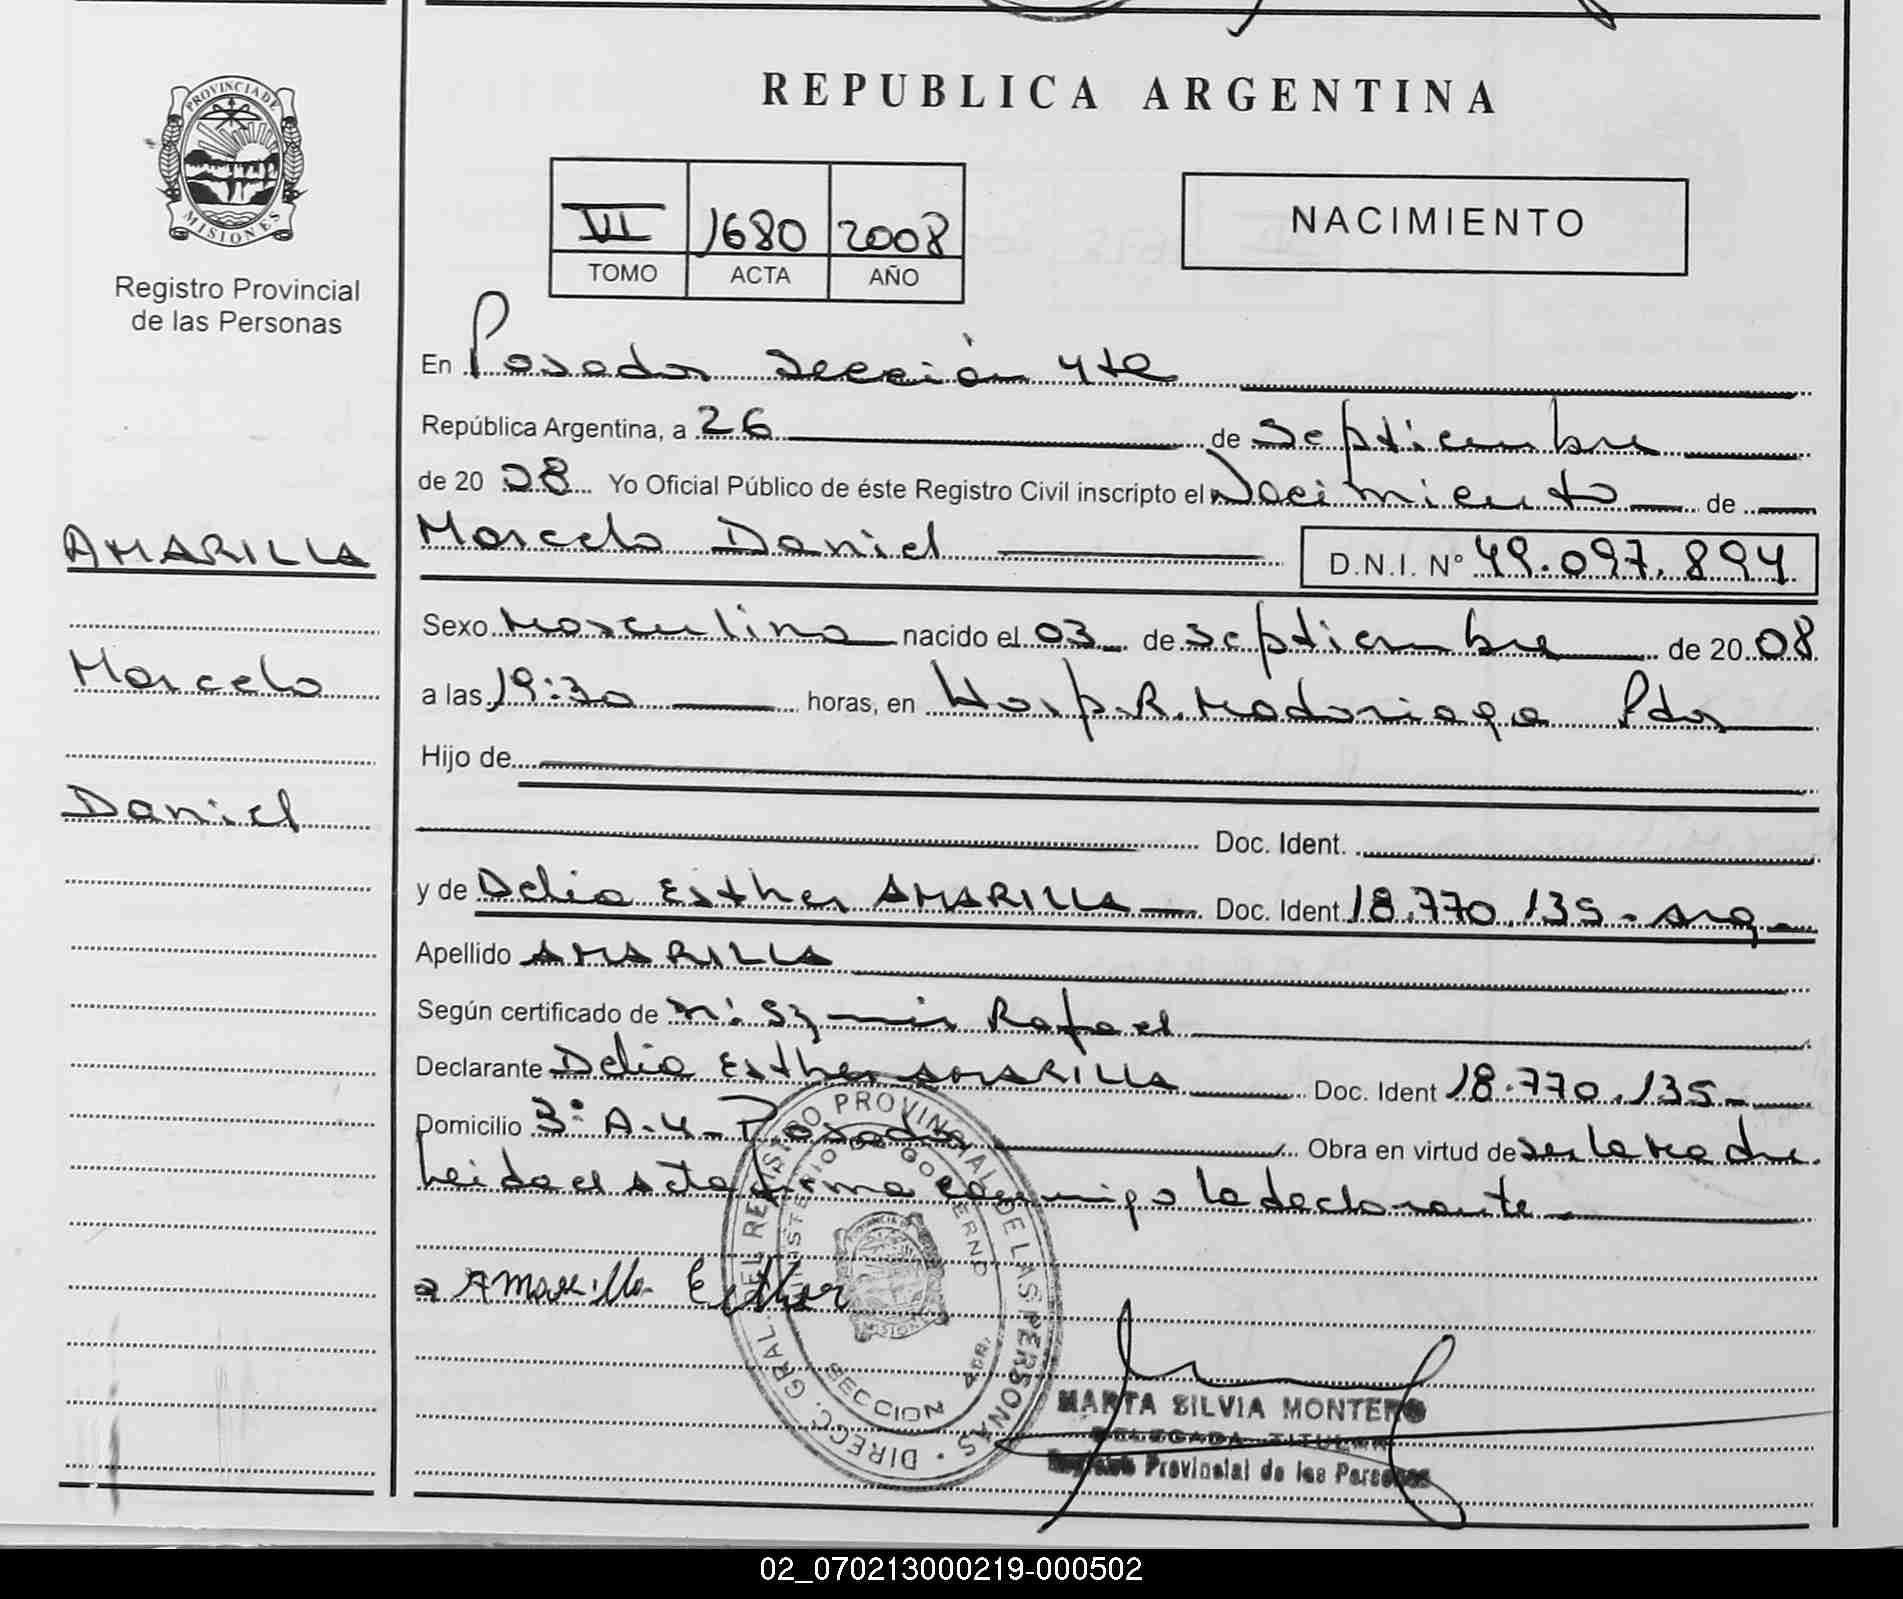 REPUBLICA ARGENTINA
PROVINCIA DE
MISIONES
Registro Provincial
de las Personas
VI 1680 2008
TOMO ACTA AÑO
NACIMIENTO
En Posadas sección 4ta
República Argentina, a 26 de septiembre
de 20 08 Yo Oficial Público de éste Registro Civil inscripto el Nacimiento de
AMARILLA
Marcelo
Daniel
Marcelo Daniel D.N.I. Nº 49.097.894
Sexo Masculino nacido el 03 de septiembre de 20 08
a las 19:30 horas, en Hosp. R. Madariaga Pdas
Hijo de
Doc. Ident.
y de Delia Esther AMARILLA Doc. Ident 18.770.135 - Arg.
Apellido AMARILLA
Según certificado de Rafael
Declarante Delia Esther AMARILLA Doc. Ident 18.770.135
Domicilio 3º A-4- Posadas Obra en virtud de ser la madre.
Leida el acta firma conmigo la declarante
Amarilla Esther
DIRECC. GRAL. DEL REGISTRO PROVINCIAL DE LAS PERSONAS
MINISTERIO DE GOBIERNO
SECCION 4DA.
MARTA SILVIA MONTERO
DELEGADA TITULAR
Registro Provincial de las Personas
02_070213000219-000502